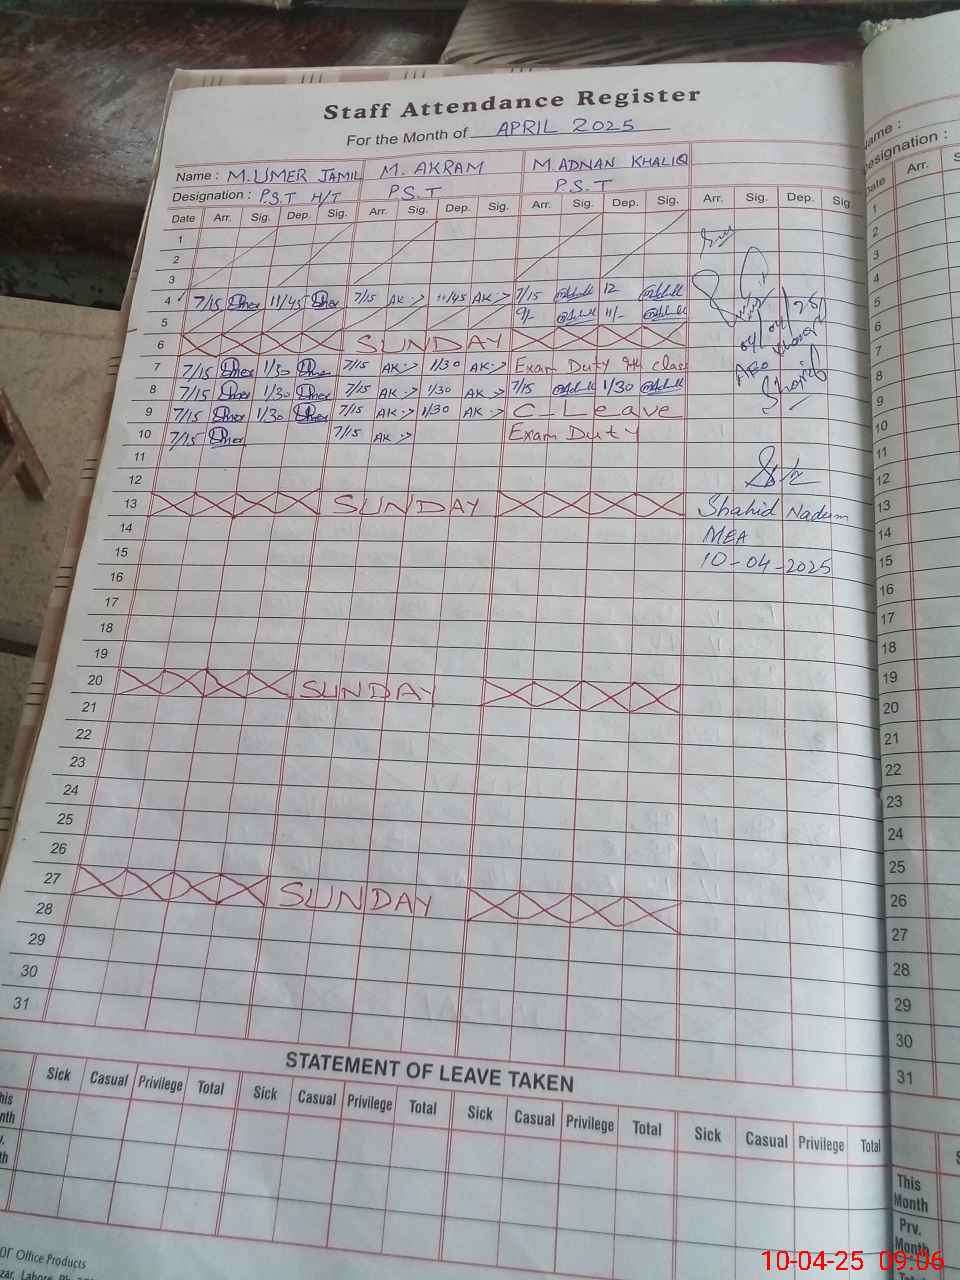 Staff Attendance Register
For the Month of APRIL 2025
Name : M.UMER JAMIL M. AKRAM M.ADNAN KHALIQ
Designation : P.S.T H/T P.S.T P.S.T
Date Arr. Sig. Dep. Sig. Arr. Sig. Dep. Sig. Arr. Sig. Dep. Sig. Arr. Sig. Dep. Sig.
1
2
3
4 7/15 11/45 7/15 AK 11/45 AK 7/15 12
5 9/- 11/-
6 SUNDAY
7 7/15 1/30 7/15 AK 1/30 AK Exam Duty 9th class
8 7/15 1/30 7/15 AK 1/30 AK 7/15 1/30
9 7/15 1/30 7/15 AK 1/30 AK C-Leave
10 7/15 7/15 AK Exam Duty
11
12
13 SUNDAY
14
15
16
17
18
19
20 SUNDAY
21
22
23
24
25
26
27 SUNDAY
28
29
30
31
04/04/25
Shahid Nadeem
MEA
10-04-2025
STATEMENT OF LEAVE TAKEN
Sick Casual Privilege Total Sick Casual Privilege Total Sick Casual Privilege Total Sick Casual Privilege Total
Office Products
Name :
Designation :
Date Arr.
1
2
3
4
5
6
7
8
9
10
11
12
13
14
15
16
17
18
19
20
21
22
23
24
25
26
27
28
29
30
31
This
Month
Prv.
Month
10-04-25 09:06